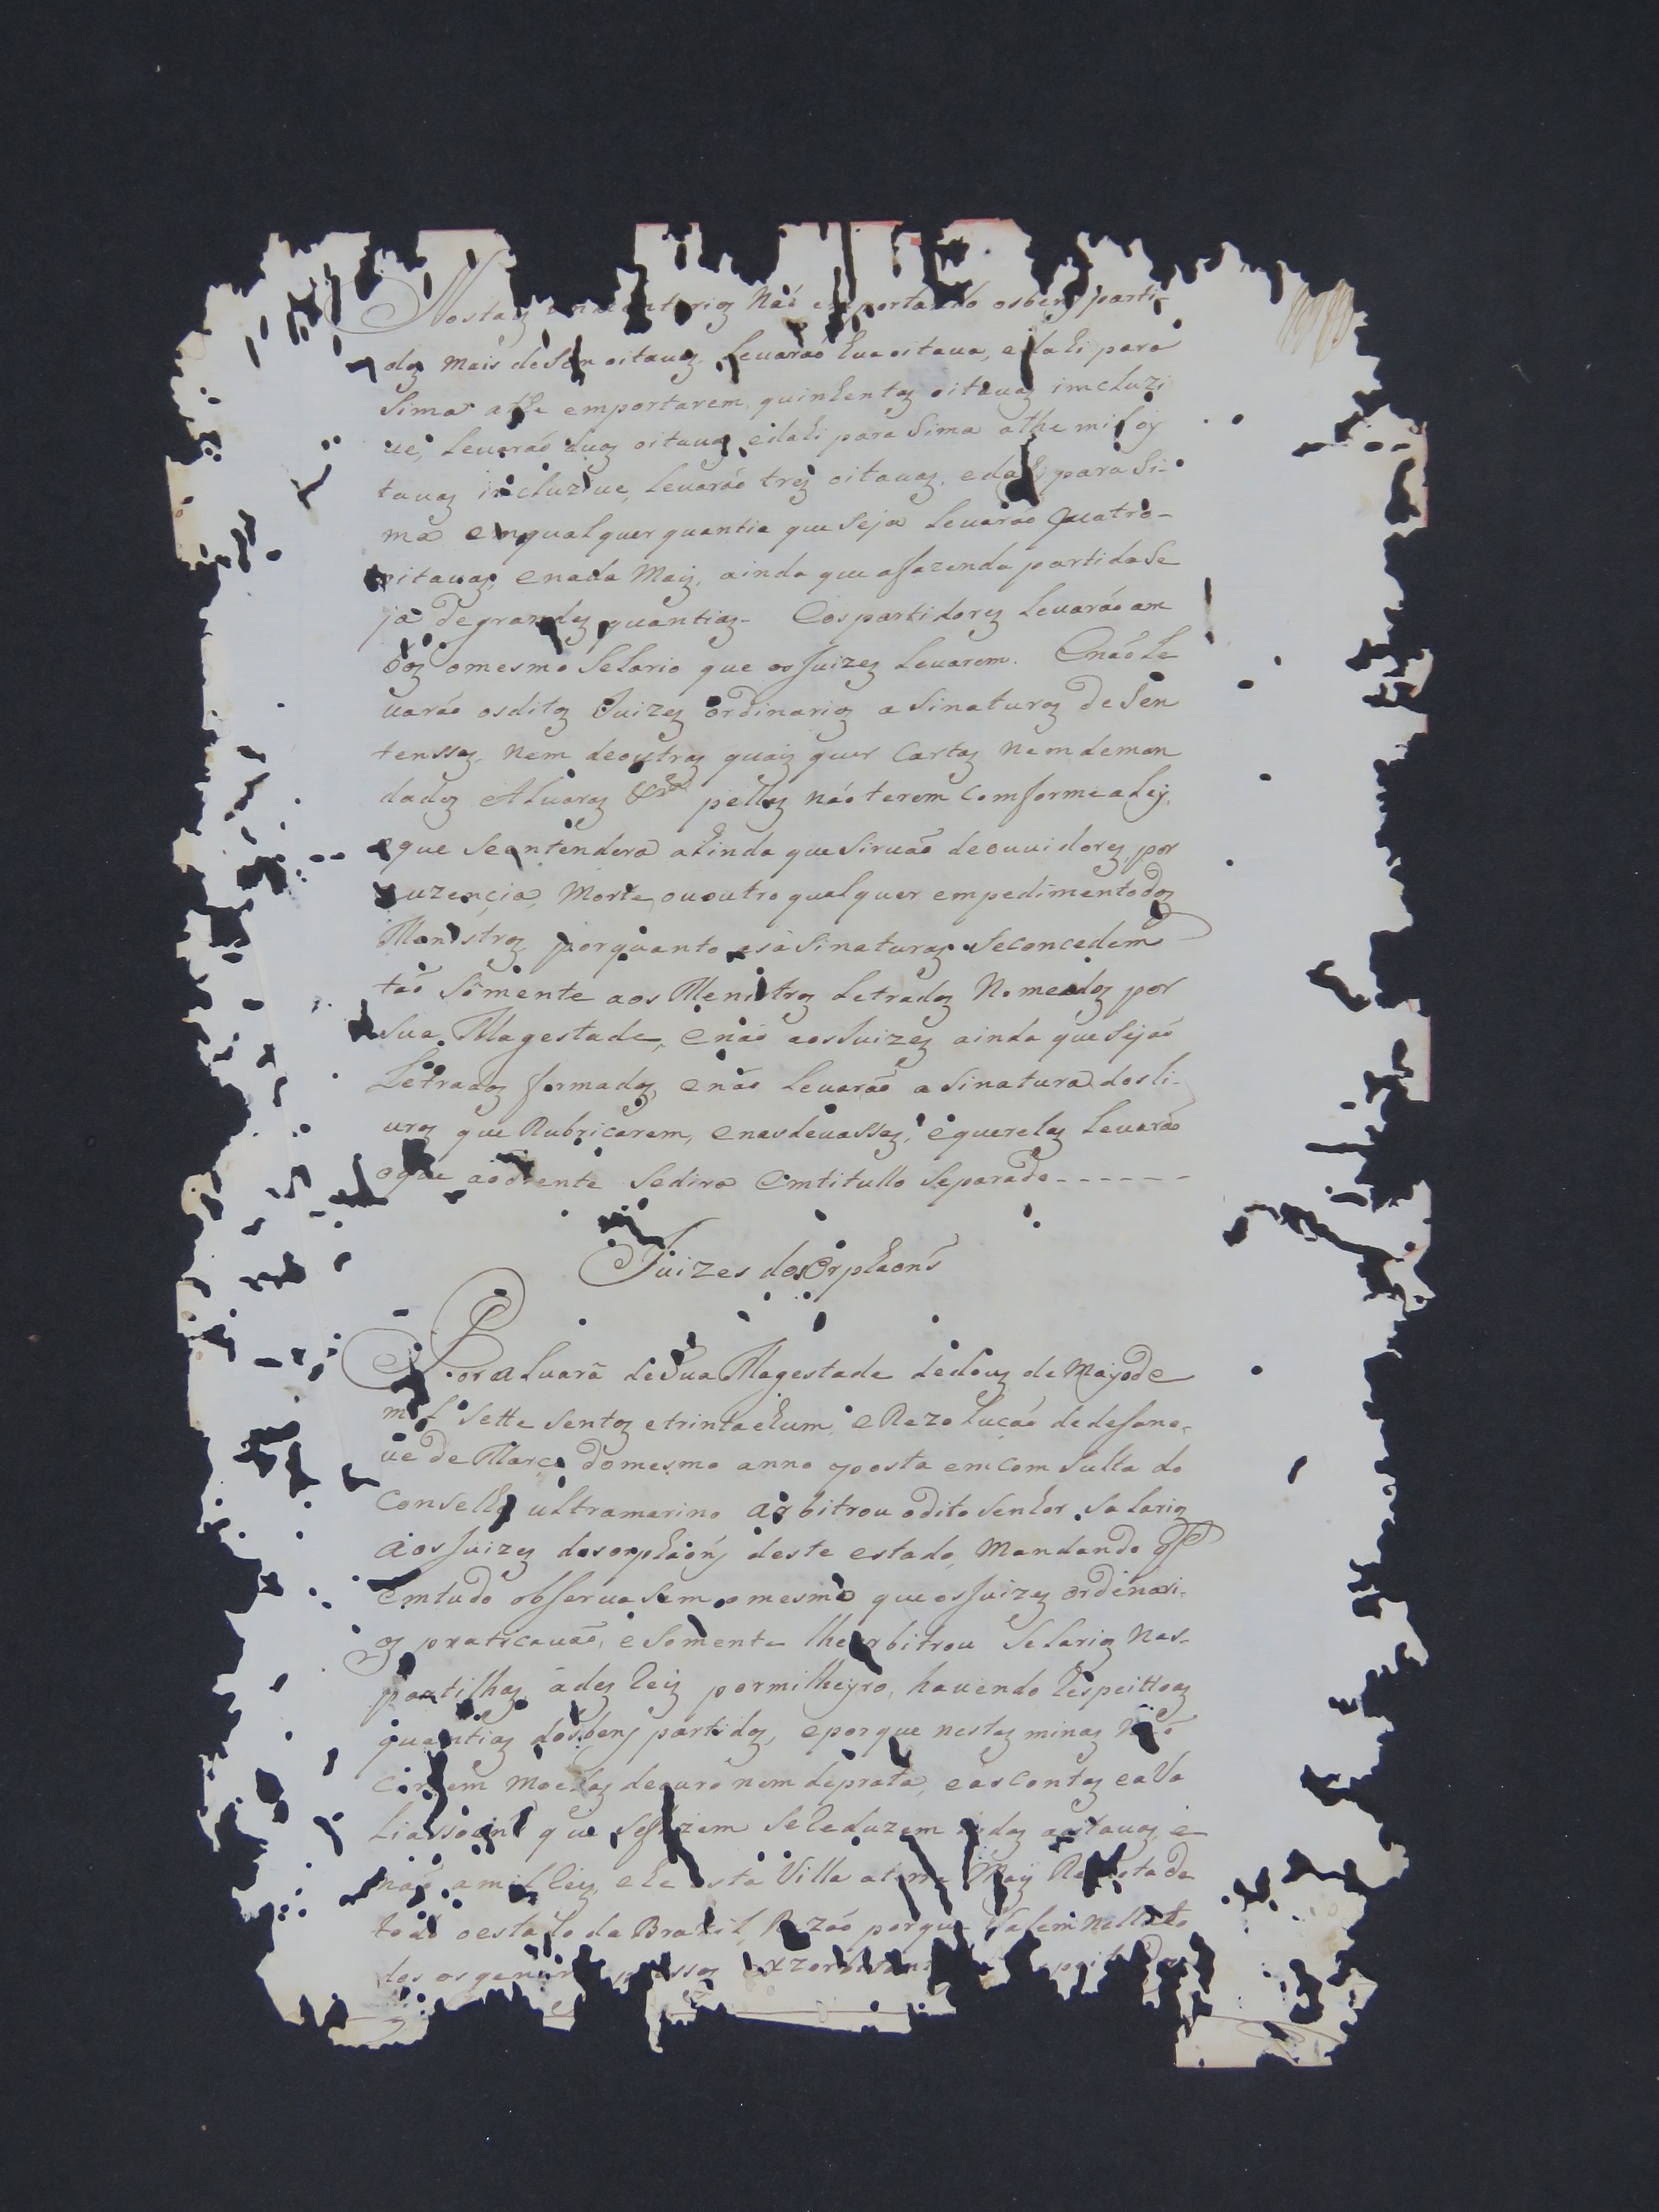 Nostas inventarios Naó emportando osbens parti-
dos mais deSem oitavas, Levaraó hua oitava, edahi para
Sima athe emportarem quinhentas oitavas imcluzi
ve, Levaraó duas oitavas, edahi para Sima athe mil oy
tavas incluzive, Levaráó tres oitavas, edahi para Si-
ma emqualquer quantia que Seja Levaráo Quatro-
oitavas, enada Mais, ainda que afazenda partidaSe
ja degrandes quantias- Eospartidores Levaráo am
bos omesmo Selario que osJuizes Levarem. EnáoLe
varáo osditos Juizes ordinarios aSinaturas deSen
tenssas, Nem deoutras quais quer Cartas Nemdeman
dados Alvaras &ra pellas náo terem Comforme aLey,
eque Seentendera ahinda queSirvaõ deouvidores, por
auzençia, Morte, ououtro qualquer empedimentodos
Menistros, porquanto asaSinaturas Seconcedem
taõ Sómente aos Menistros Letrados Nomeados por
Sua Magestade, enáo aosJuizes ainda queSejaó
Letrados formados, enáo Levaráo aSinatura dosli-
vros que Rubricarem, enasdevassas, equerelas Levaráo
oque aodiente Sedira Emtitullo Separado------
Juizes dosOrphaons
Por aLvará deSua Magestade dedous de Mayode
mil Sette Sentos etrintaehum, eRezoLuçáó dedesano-
ve de Março domesmo anno posta emcomSulta do
Conselho ultramarino arbitrou odito Senhor Salarios
aosJuizes dosorphaóns deste estado, Mandando q̃
emtudo observaSem omesmo que osJuizes ordenari-
os praticavaó, eSomente lhe arbitrou Selarios Nas-
partilhas, ades Reis pormilheyro, havendo Respeittoas
quantias dosbens partidos, eporque nestas minas Naó
Correm Moedas deouro nem deprata, eas contas eaVa
Liassoins que Sefazem SeReduzem todas aoitavas, e
náo amil Reis, ehe esta Villa aterra Mais Remota de
todo oestado do Brazil, Razáó porque Valem Nella to
dos osgeneros